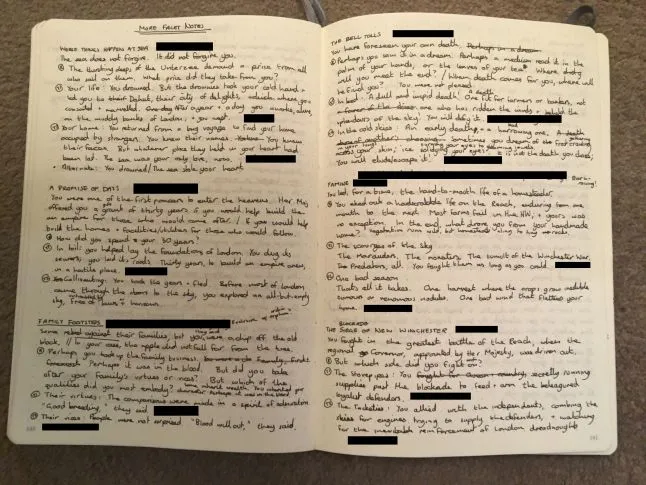 MORE FACET NOTES
WORSE THINGS HAPPEN AT SEA
The sea does not forgive. It did not forgive you.
The thirsting deeps of the Unterzee demand a price from all
who sail on them. What price did they take from you?
Your life: You drowned. But the drownies took your cold hand +
led you to their
+ marvelled. a year + a day you awoke, along
on the muddy banks of London, + you wept.
Your home: You returned from a long voyage to find your home
occupied by strangers. You knew their names. You knew
their faces. But whatever place they held in your heart had
been lost. The sea was your only love, now.
Alternate: You drowned/The sea stole your heart
A PROMISE OF DAYS
You were one of the first pioneers to enter the heavens. Her Maj
offered you a grant of thirty years if you would help build the
an empire for those who would come after. / if you would help
build the homes + factories/children for those who would follow.
How did you spend your 30 years?
In toil: you helped lay the foundations of London. You dug its
sewers, you laid its roads. Thirty years, to build an empire anew,
in a hostile place.
You took the years + fled. Before most of London
came through the doors to the sky, you explored an all-but-empty
sky, free of laws + honour.
FAMILY FOOTSTEPS
Some rebel against their families, but you were a chip off the old
block. // In your case, the apple did not fall far from the tree.
Perhaps you took up the family business.
Perhaps it was in the blood. But did you take
after your family's virtues or vices? But which of the
qualities did you most embody?
Their virtues: The companions were made in a spirit of
"Good breeding," they said
Their vices: People were not surprised. "Blood will out," they said.
THE BELL TOLLS
You have foreseen your own death. Perhaps in a dream
Perhaps you saw it in a dream. Perhaps a medium read it in the
palm of your hands, or the leaves of your tea. Where
will you meet the end? / When death comes for you, where will
he find you? You were not pleased.
In bed. A dull and stupid death. One fit for farmers or bankers, not
one who has ridden the winds + beheld the
splendours of the sky. You will defy it.
In the cold skies. An early death, + a harrowing one.
Sometimes you dream of the frost crawling
across your skin; ice
You will elude/escape it.
FAMINE
You led, for a time, the hand-to-mouth life of a homesteader.
You eked out a life on the Reach, enduring from one
month to the next. Most farms fail in the HW, + yours was
no exception. In the end, what drove you from your handmade
home?
The scourges of the sky
The Marauders. The monsters. The tumult of the Winchester War.
The Predators, all. You fought them as long as you could.
One bad season
That's all it takes. One harvest where the crops grow inedible
tumorous or venomous nodules. One bad wind that flattens your
home.
BLOCKADE
THE SIEGE OF NEW WINCHESTER
You fought in the greatest battle of the Reach, when the
regional Governor, appointed by Her Majesty, was driven out.
But which side did you fight on?
The Stovepipes: You secretly running
supplies past the blockade to feed + arm the beleaguered
loyalist defenders.
The Tacketies: You allied with the independents, combing the
skies for engines trying to supply the defenders, + watching
for the inevitable reinforcement of London dreadnoughts